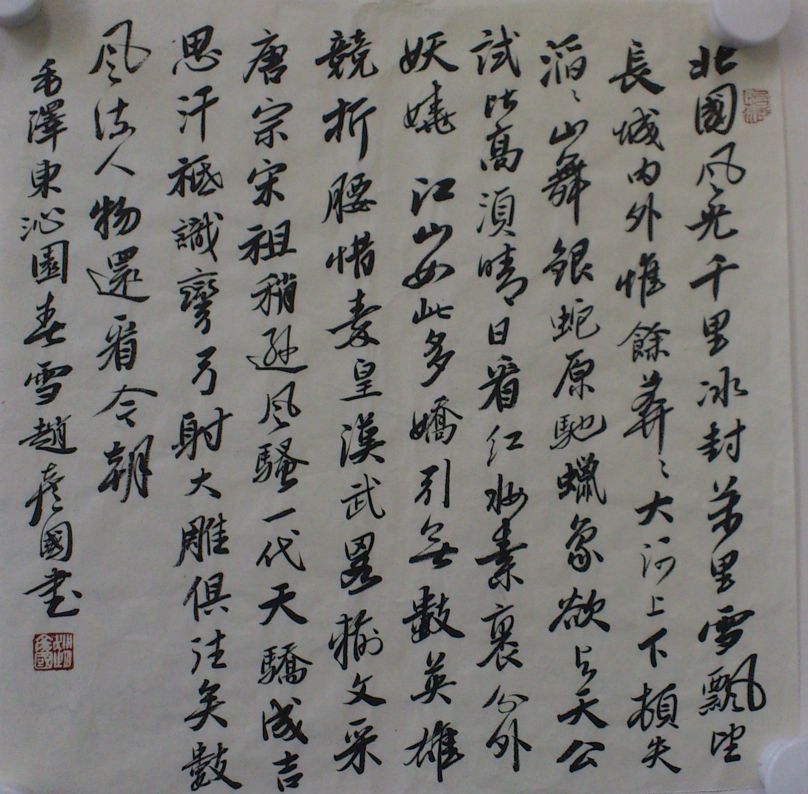 北國风光千里冰封萬里雪飄望
長城内外惟餘莽〻大河上下頓失
滔〻山舞銀蛇原馳蠟象欲与天公
試比高須晴日看红妝素裹分外
妖嬈江山如此多嬌引無數英雄
競折腰惜秦皇漢武畧輸文采
唐宗宋祖稍遜风騷一代天驕成吉
思汗祗識彎弓射大雕俱往矣數
风流人物還看今朝
毛澤東沁園春雪趙彥國書